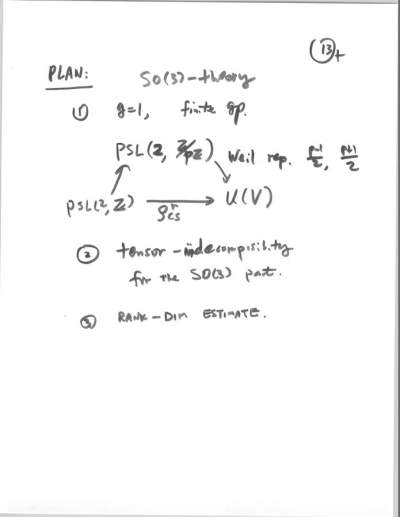 (13)+
PLAN: SO(3)-theory
① g=1, finite gp.
PSL(2, Z/pZ) Weil rep. p-1/2, p+1/2
PSL(2, Z) → U(V)
② tensor-indecomposibility
for the SO(3) part.
③ RANK-DIM ESTIMATE.